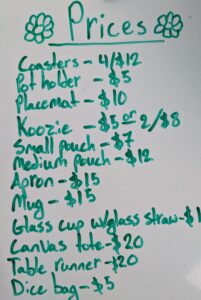 Prices
Coasters - 4/$12
Pot holder - $5
Placemat - $10
Koozie - $5 or 2/$8
Small pouch - $7
Medium pouch - $12
Apron - $15
Mug - $15
Glass cup w/glass straw -
Canvas tote - $20
Table runner - $20
Dice bag - $5